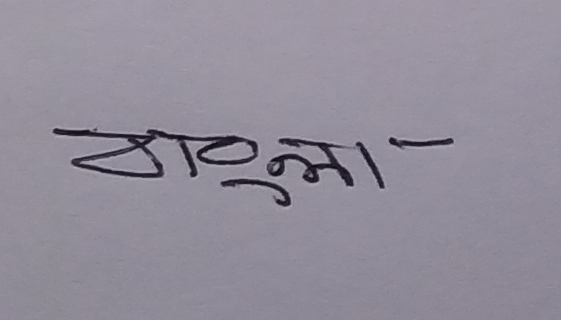 বাংলা -